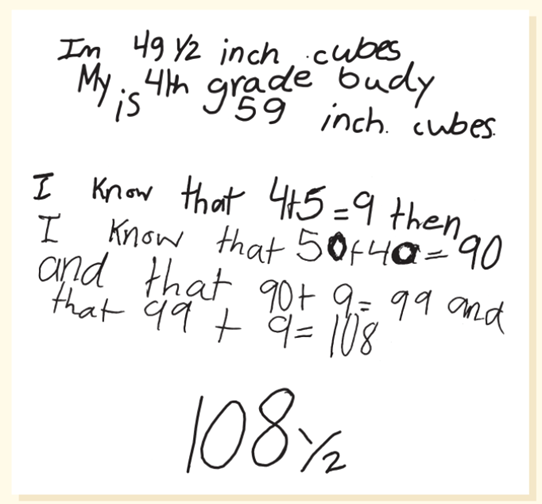 Im 49 1/2 inch cubes
My 4th grade budy
is 59 inch. cubes.
I know that 4+5=9 then
I know that 50+40=90
and that 90+ 9= 99 and
that 99 + 9= 108
108 1/2